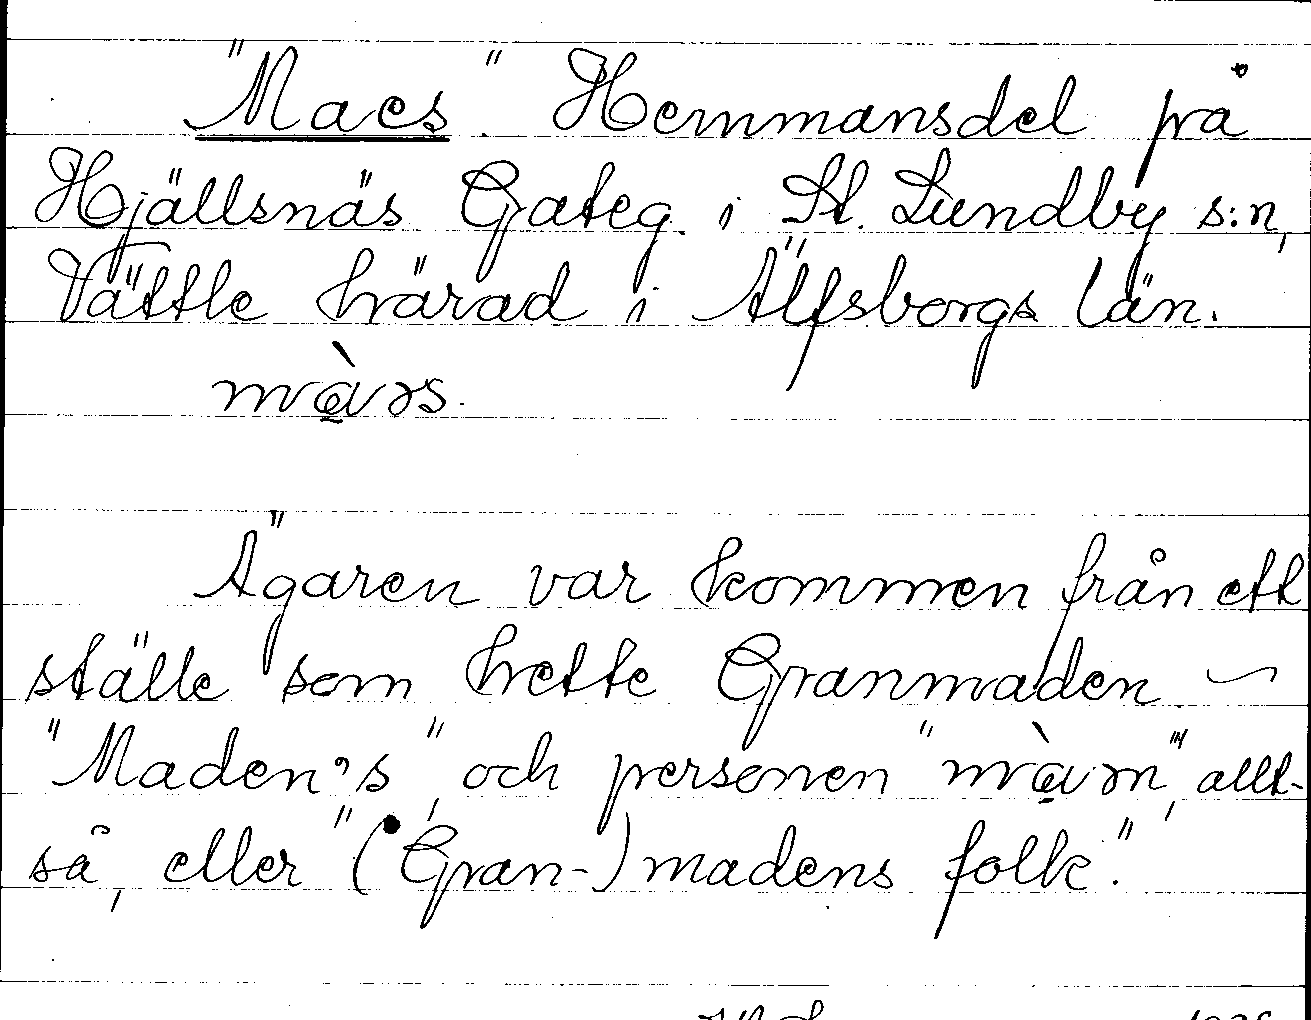 "Maes". Hemmansdel på
Hjällsnäs Gateg. i St. Lundby s:n,
Vättle härad i Älfsborgs län.
màɘs.
Ägaren var kommen från ett
ställe som hette Granmaden –
"Maden's", och personen "màɘn", allt-
så, eller "(Gran-)madens folk".